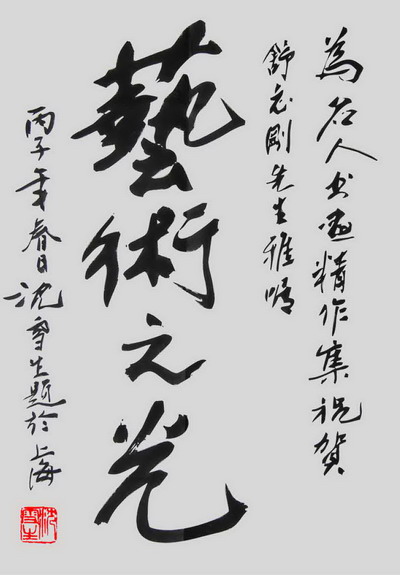 為名人书画精作集祝賀
舒志剛先生雅嘱
藝術之光
丙子年春日沈雪生題於上海
沈雪生